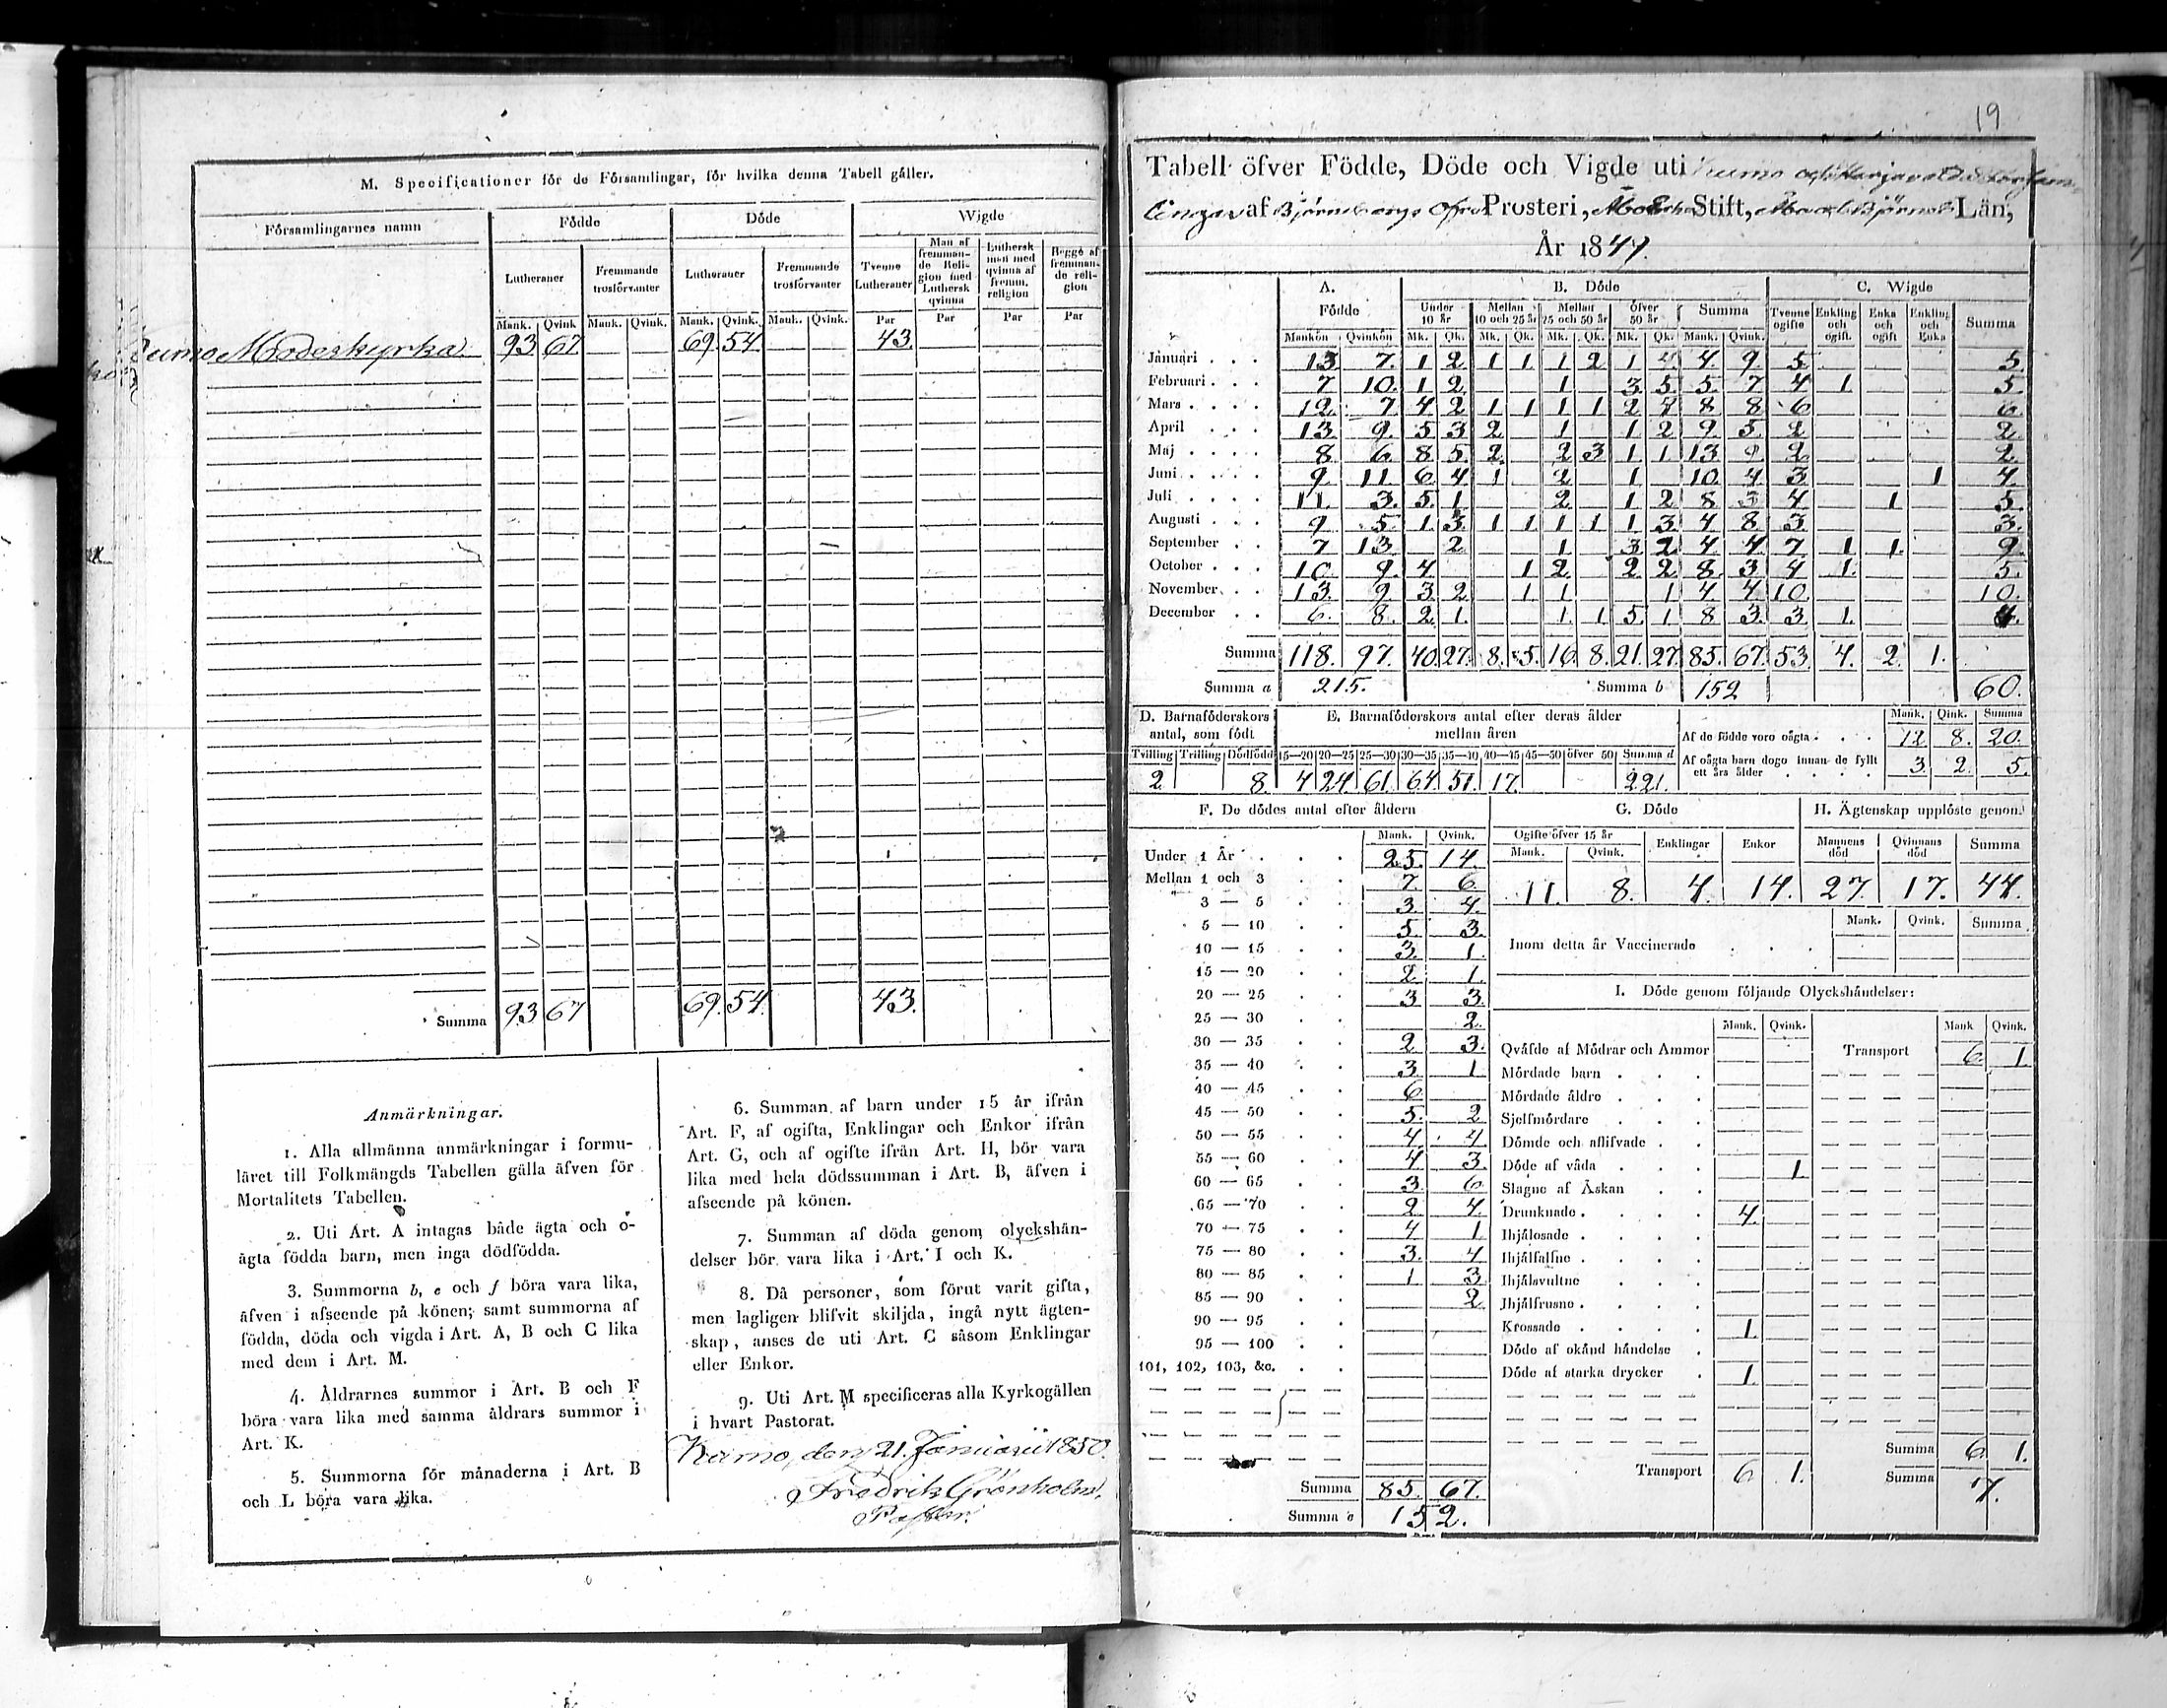 M. Specificationer för de Församlingar, för hvilka denna Tabell gäller.
Församlingarnes namn | Födde | Döde | Wigde
Lutheraner | Fremmande trosförvanter | Lutheraner | Fremmande trosförvanter | Tvenne Lutheraner | Man af fremmande Religion med Luthersk qvinna | Luthersk man med qvinna af fremm. religion | Begge af fremmande religion
Mank. | Qvink | Mank. | Qvink. | Mank. | Qvink. | Mank. | Qvink. | Par | Par | Par | Par
Kumo Moderkyrka | 93 | 67 | 69. | 54. | 43.
Summa | 93 | 67 | 69. | 54. | 43.
Anmärkningar.
1. Alla allmänna anmärkningar i formu-
läret till Folkmängds Tabellen gälla äfven för
Mortalitets Tabellen.
2. Uti Art. A intagas både ägta och o-
ägta födda barn, men inga dödfödda.
3. Summorna b, e och f böra vara lika,
äfven i afseende på könen; samt summorna af
födda, döda och vigda i Art. A, B och C lika
med dem i Art. M.
4. Åldrarnes summor i Art. B och F
böra vara lika med samma åldrars summor i
Art. K.
5. Summorna för månaderna i Art. B
och L böra vara lika.
6. Summan af barn under 15 år ifrån
Art. F, af ogifta, Enklingar och Enkor ifrån
Art. G, och af ogifte ifrån Art. H, bör vara
lika med hela dödssumman i Art. B, äfven i
afseende på könen.
7. Summan af döda genom olyckshän-
delser bör vara lika i Art. I och K.
8. Då personer, som förut varit gifta,
men lagligen blifvit skiljda, ingå nytt ägten-
skap, anses de uti Art. C såsom Enklingar
eller Enkor.
9. Uti Art. M specificeras alla Kyrkogällen
i hvart Pastorat.
Kumo, den 21. Januarii 1850.
Fredrik Grönholm.
Pastor.
19
Tabell öfver Födde, Döde och Vigde uti Kumo och Harjavalda Försam
lingar af Björneborgs Öfre Prosteri, Åbo Erke Stift, Åbo och Björneb. Län,
År 1847.
A. Födde | B. Döde | C. Wigde
Under 10 år | Mellan 10 och 25 år | Mellan 25 och 50 år | Öfver 50 år | Summa | Tvenne ogifte | Enkling och ogift. | Enka och ogift | Enkling och Enka | Summa
Mankön | Qvinkön | Mk. | Qk. | Mk. | Qk. | Mk. | Qk. | Mk. | Qk. | Mank. | Qvink.
Januari . . . 13 7. 1 2 1 1. 1 2 1 4. 4. 9. 5. 5.
Februari . . . 7 10. 1 2 1 3 5 5. 7 4 1 5.
Mars . . . . 12. 7 4 2 1 1 1 1 2 4 8 8 6 6
April . . . 13 9. 5 3 2 1 1 2 9. 5. 2 2.
Maj . . . . 8 6 8 5 2 2 3 1 1 13 9 2 2
Juni . . . . 9 11. 6 4 1 2 1 10. 4 3 1 4.
Juli . . . . 11. 3. 5. 1 2 1 2 8 3 4 1 5.
Augusti . . . 9 5 1 3. 1 1. 1 1 1 3. 4 8. 3. 3.
September . . 7 13 2 1 3 2 4 4 7. 1 1. 9.
October . . . 10 9. 4 1 2 2 2 8. 3. 4 1. 5.
November . . 13. 9 3 2 1 1 1 4 4. 10. 10.
December . . 6. 8. 2 1. 1 1 5. 1 8 3. 3 1. 4.
Summa 118. 97. 40. 27. 8. 5. 16. 8. 21. 27. 85. 67. 53. 4. 2. 1.
Summa a 215. Summa b 152 60.
D. Barnaföderskors antal, som födt
Tvilling | Trilling | Dödfödd
2 | 8.
E. Barnaföderskors antal efter deras ålder mellan åren
15—20 | 20—25 | 25—30 | 30—35 | 35—40 | 40—45 | 45—50 | öfver 50 | Summa d
4 | 24. | 61. | 64. | 51. | 17. | 221.
Mank. | Qink. | Summa
Af de födde voro oägta . . . 12 8. 20.
Af oägta barn dogo innan de fyllt ett års ålder . . . . 3. 2. 5.
F. De dödes antal efter åldern
Mank. | Qvink.
Under 1 År . . . 25. 14.
Mellan 1 och 3 . . 7. 6.
3 — 5 . . 3. 4.
5 — 10 . . 5. 3.
10 — 15 . . 3. 1.
15 — 20 . . 2 1.
20 — 25 . . 3 3.
25 — 30 . . 2.
30 — 35 . . 2 3.
35 — 40 . . 3. 1
40 — 45 . . 6.
45 — 50 . . 5. 2
50 — 55 . . 4 4.
55 — 60 . . 4 3.
60 — 65 . . 3. 6
65 — 70 . . 2 4.
70 — 75 . . 4 1.
75 — 80 . . 3. 4
80 — 85 . . 1 3
85 — 90 . . 2
90 — 95 . .
95 — 100 . .
101, 102, 103, &c. . .
Summa 85. 67.
Summa e 152.
G. Döde
Ogifte öfver 15 år | Enklingar | Enkor
Mank. | Qvink.
11. | 8. | 4. | 14.
H. Ägtenskap upplöste genom
Mannens död | Qvinnans död | Summa
27. | 17. | 44.
Mank. | Qvink. | Summa
Inom detta år Vaccinerade . . .
I. Döde genom följande Olyckshändelser:
Mank. | Qvink. | Mank | Qvink.
Qväfde af Mödrar och Ammor | Transport 6. 1.
Mördade barn . . .
Mördade äldre . . .
Sjelfmördare . .
Dömde och aflifvade . .
Döde af våda . . . 1.
Slagne af Åskan . .
Drunknade . . . . 4.
Ihjälosade . . . .
Ihjälfallne . . . .
Ihjälsvultne . . .
Ihjälfrusne . . . .
Krossade . . . . 1.
Döde af okänd händelse .
Döde af starka drycker . 1.
Summa 6. 1.
Transport 6 1. Summa 7.